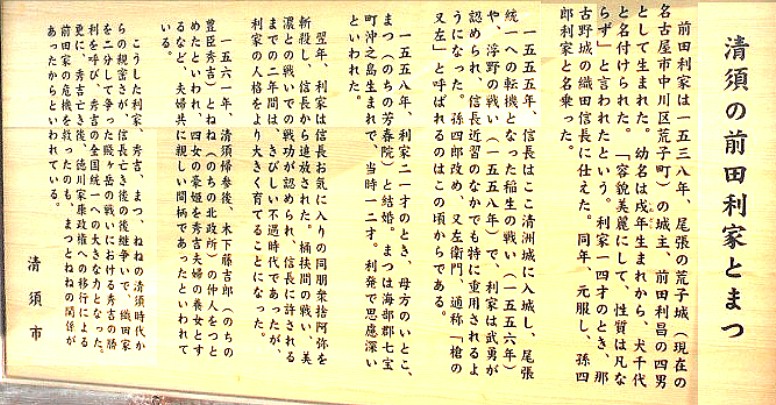 清須の前田利家とまつ
前田利家は一五三八年、尾張の荒子城（現在の
名古屋市中川区荒子町）の城主、前田利昌の四男
として生まれた。幼名は戌年生まれから、犬千代
と名付けられた。「容貌美麗にして、性質は凡な
らず」と言われたという。利家一四才のとき、那
古野城の織田信長に仕えた。同年、元服し、孫四
郎利家と名乗った。
一五五五年、信長はここ清洲城に入城し、尾張
統一への転機となった稲生の戦い（一五五六年）
や、浮野の戦い（一五五八年）で、利家は武勇が
認められ、信長近習のなかでも特に重用されるよ
うになった。孫四郎改め、又左衛門、通称「槍の
又左」と呼ばれるのはこの頃からである。
一五五八年、利家二一才のとき、母方のいとこ、
まつ（のちの芳春院）と結婚。まつは海部郡七宝
町沖之島生まれで、当時一二才。利発で思慮深い
といわれた。
翌年、利家は信長お気に入りの同朋衆拾阿弥を
斬殺し、信長から追放された。桶狭間の戦い、美
濃との戦いでの戦功が認められ、信長に許される
までの二年間は、きびしい不遇時代であったが、
利家の人格をより大きく育てることになった。
一五六一年、清須帰参後、木下藤吉郎（のちの
豊臣秀吉）とねね（のちの北政所）の仲人をつと
めたといわれ、四女の豪姫を秀吉夫婦の養女とす
るなど、夫婦共に親しい間柄であったといわれて
いる。
こうした利家、秀吉、まつ、ねねの清須時代か
らの親密さが、信長亡き後の後継争いで、織田家
を二分して争った賤ヶ岳の戦いにおける秀吉の勝
利を呼び、秀吉の全国統一への大きな力となった。
更に、秀吉亡き後、徳川家康政権への移行による
前田家の危機を救ったのも、まつとねねの関係が
あったからといわれている。
清須市